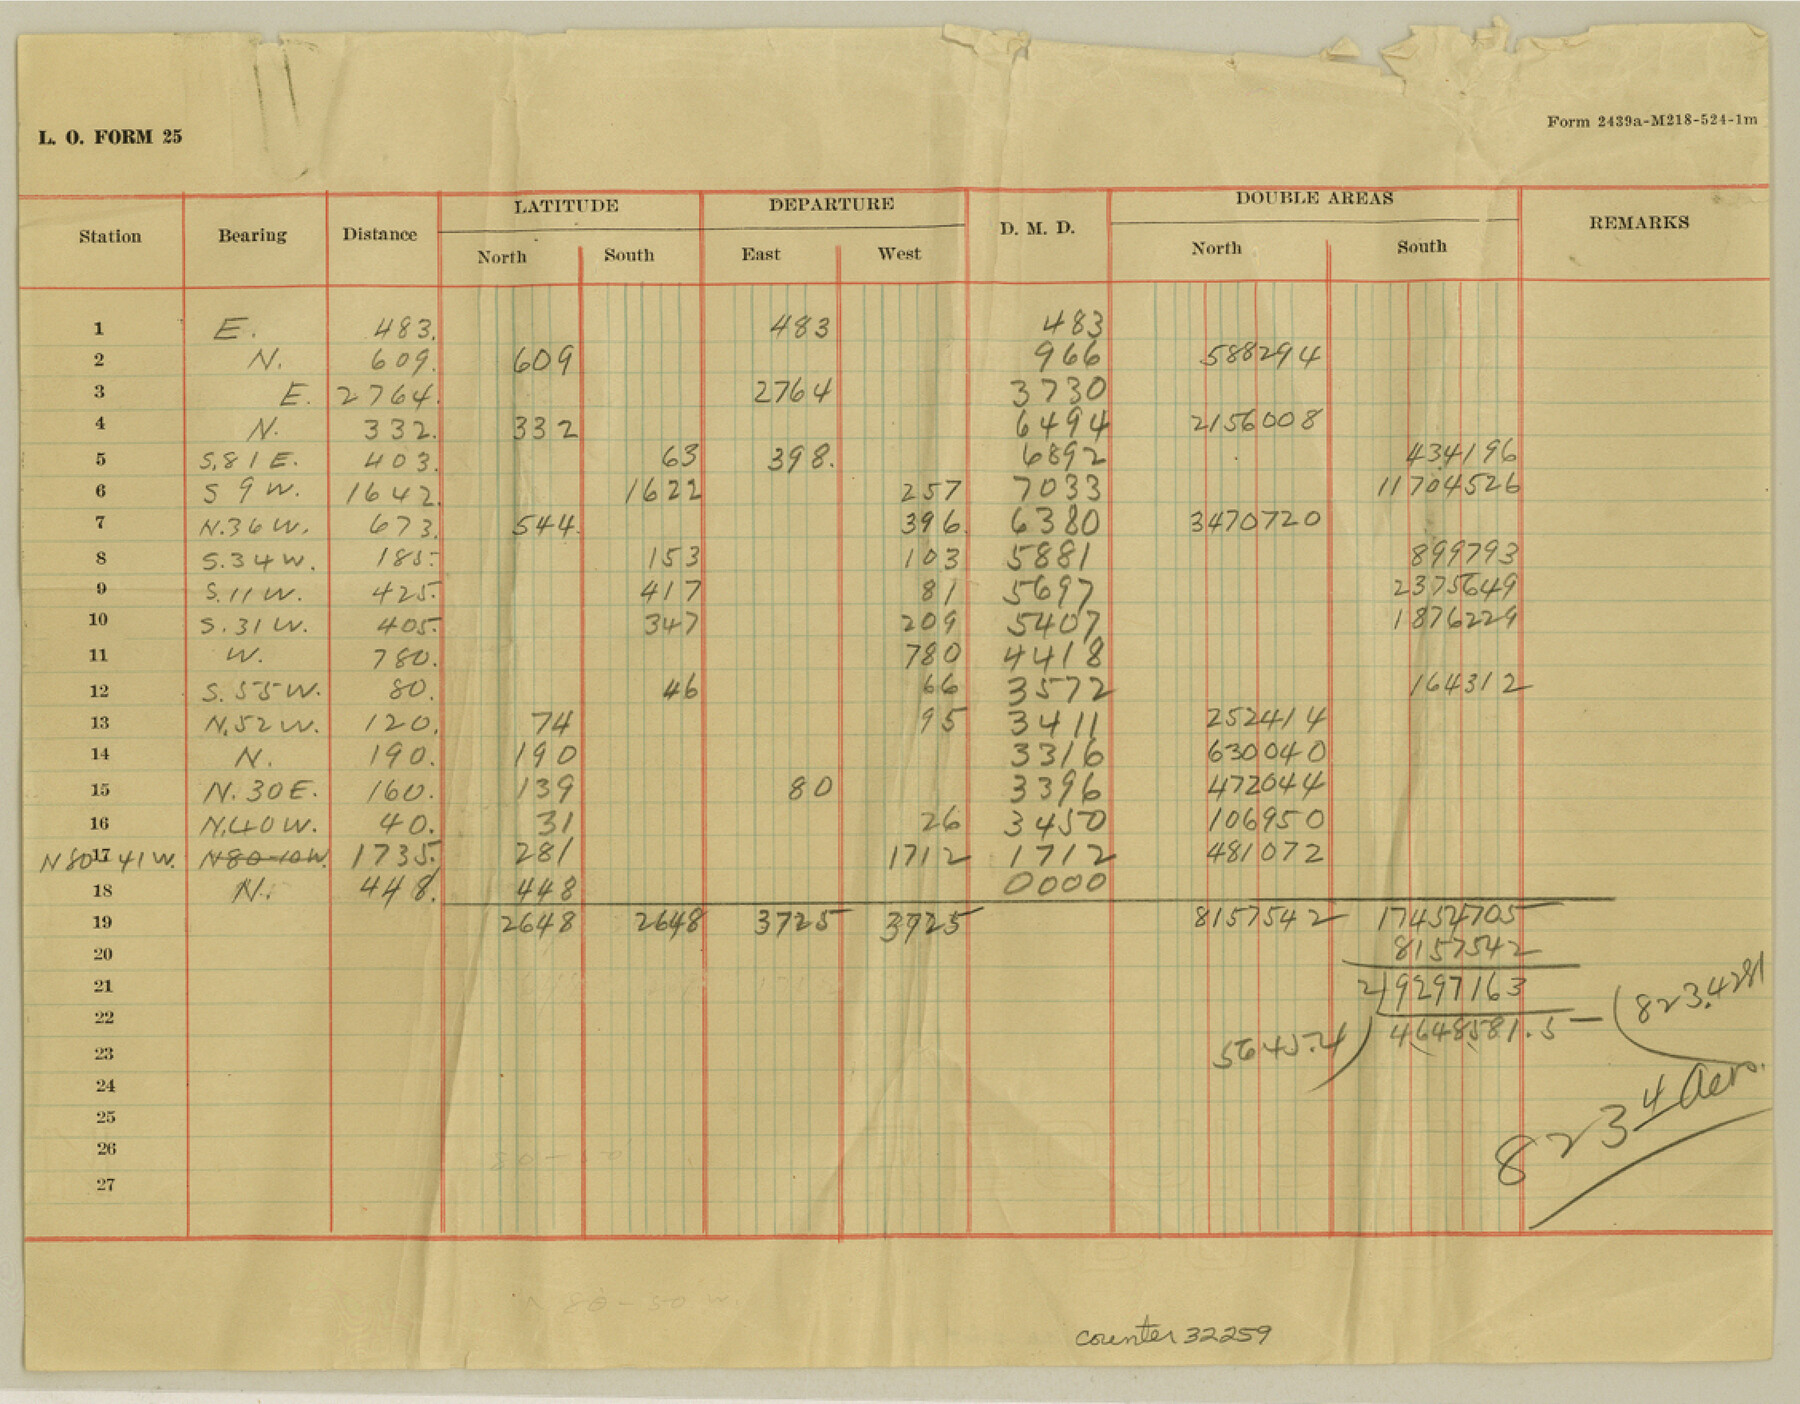 L. O. FORM 25
Form 2439a-M218-524-1m
LATITUDE DEPARTURE DOUBLE AREAS
Station Bearing Distance D. M. D. REMARKS
North South East West North South
1 E. 483. 483 483
2 N. 609. 609 966 588294
3 E. 2764. 2764 3730
4 N. 332. 332 6494 2156008
5 S.81 E. 403. 63 398. 6892 434196
6 S 9 W. 1642. 1622 257 7033 11704526
7 N.36 W. 673. 544. 396. 6380 3470720
8 S.34 W. 185. 153 103 5881 899793
9 S.11 W. 425. 417 81 5697 2375649
10 S.31 W. 405. 347 209 5407 1876229
11 W. 780. 780 4418
12 S.55 W. 80. 46 66 3572 164312
13 N.52 W. 120. 74 95 3411 252414
14 N. 190. 190 3316 630040
15 N.30 E. 160. 139 80 3396 472044
16 N.40 W. 40. 31 26 3450 106950
N 80-41 W. 17 N 80-10 W. 1735. 281 1712 1712 481072
18 N. 448. 448 0000
19 2648 2648 3725 3725 8157542 17454705
20 8157542
21 2)9297163
22 5645.4) 4648581.5 - (823.4281
23
24
823 4 Acrs.
25
26
27
N 80-50 W.
counter 32259